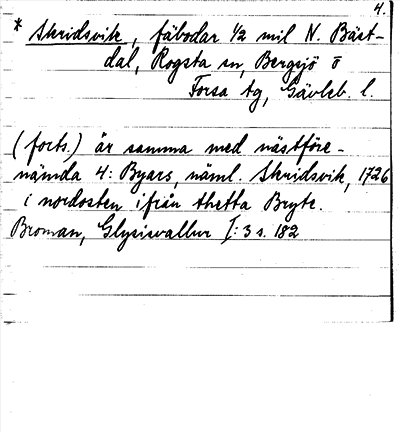 4.
* Skridsvik, fäbodar 1/2 mil N. Bäst-
dal, Rogsta sn, Bergsjö o
Forsa tg, Gävleb. l.
(forts.) är samma med nästföre-
nämda 4: Byars, näml. Skridsvik, 1726
i nordosten ifrån thetta Bryte.
Broman, Glysisvallur I: 3 s. 182